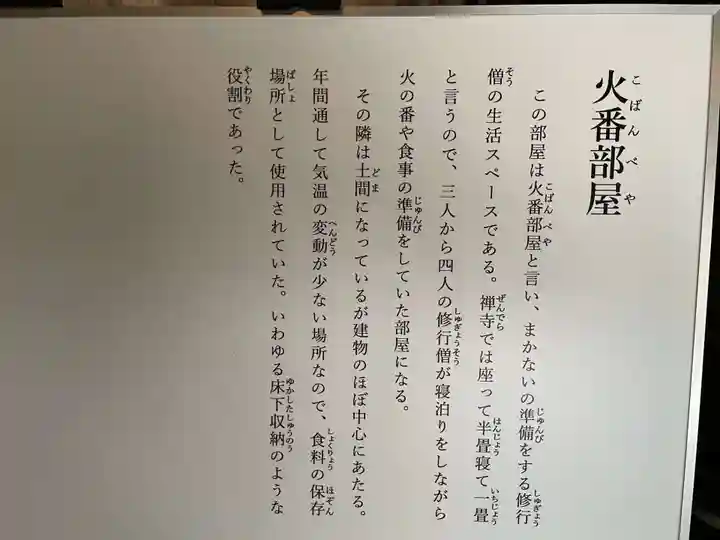 火番部屋
この部屋は火番部屋と言い、まかないの準備をする修行
僧の生活スペースである。禅寺では座って半畳寝て一畳
と言うので、三人から四人の修行僧が寝泊りをしながら
火の番や食事の準備をしていた部屋になる。
その隣は土間になっているが建物のほぼ中心にあたる。
年間通して気温の変動が少ない場所なので、食料の保存
場所として使用されていた。いわゆる床下収納のような
役割であった。